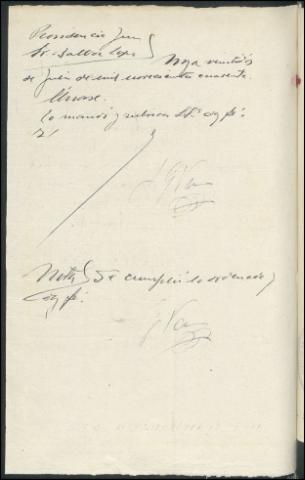 Providencia Juez
Sr. Salvor Lopez } Noya veintidós
de Junio de mil novecientos cuarenta.
Únase.
Lo mandó y rubrica SSª doy fé.
Nota } Se cumplió lo ordenado,
doy fé.